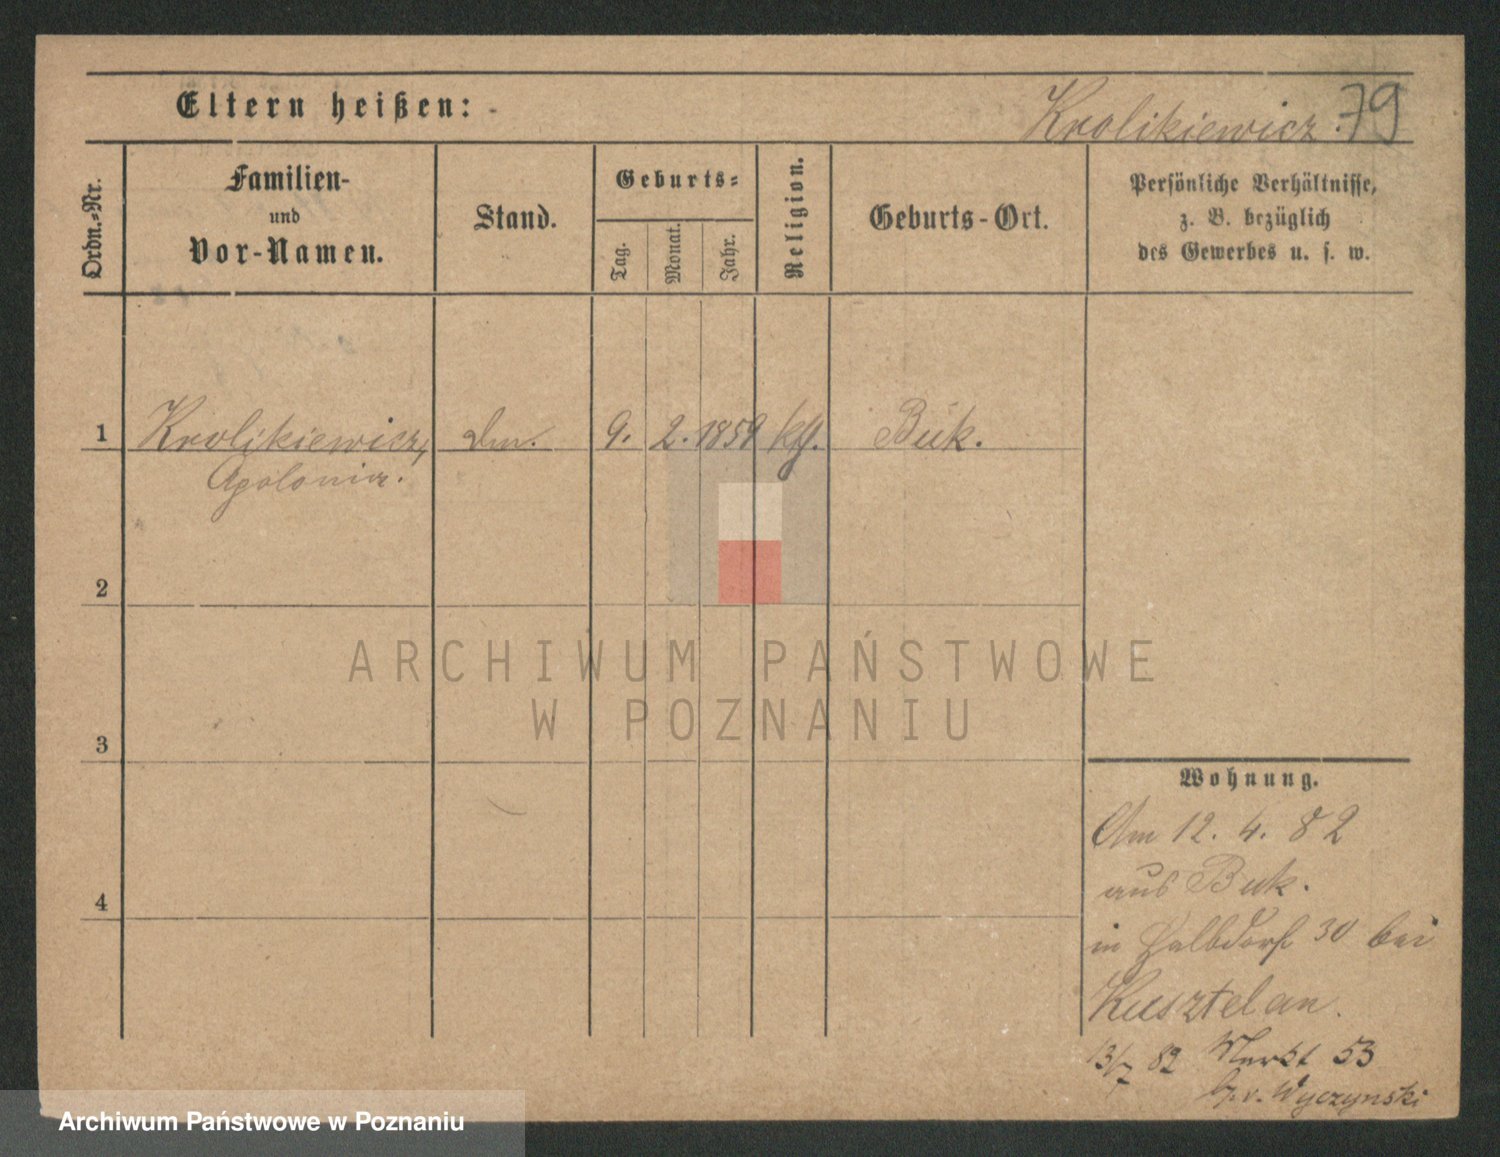 Eltern heißen:
Krolikiewicz. 79
Ordn.-Nr.
Familien-
und
Vor-Namen.
Stand.
Geburts-
Tag.
Monat.
Jahr.
Religion.
Geburts-Ort.
Persönliche Verhältnisse,
z. B. bezüglich
des Gewerbes u. s. w.
1 Krolikiewicz, 9. 2. 1859 kth. Buk.
Apolonia.
2
3
4
ARCHIWUM PAŃSTWOWE
W POZNANIU
Wohnung.
Am 12. 4. 82
aus Buk.
in Halbdorf 30 bei
Kusztelan.
13/7 82 Markt 53
b. v. Wyczynski
Archiwum Państwowe w Poznaniu